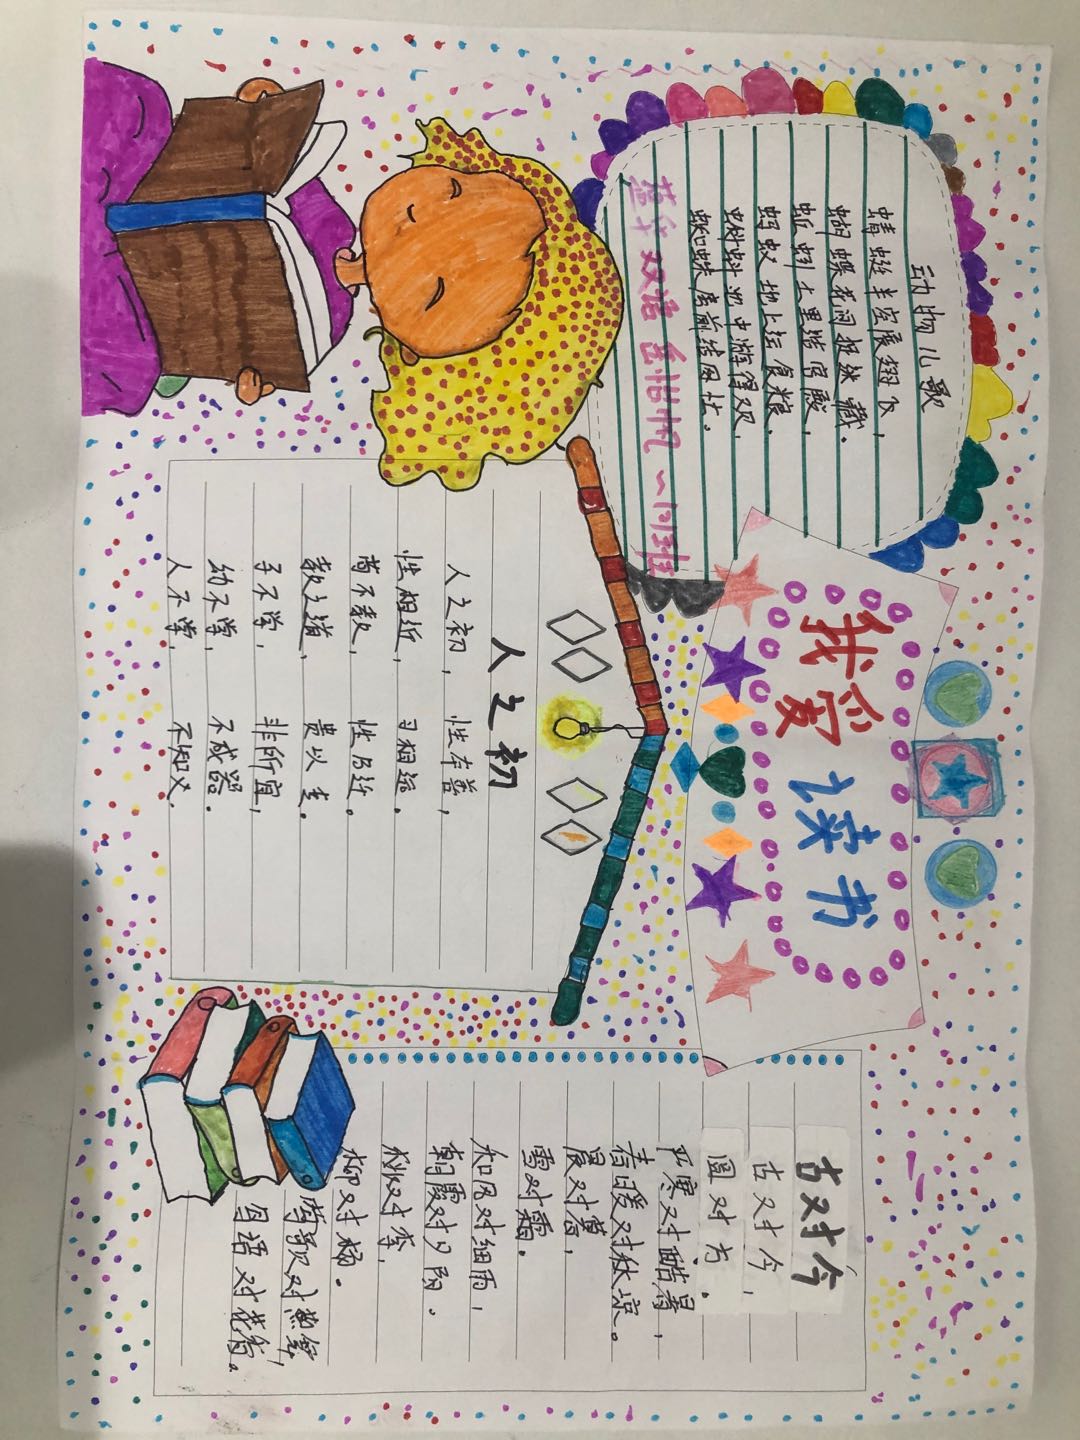 我爱读书
动物儿歌
蜻蜓半空展翅飞，
蝴蝶花间捉迷藏。
蚯蚓土里造宫殿，
蚂蚁地上运食粮。
蝌蚪池中游得欢，
蜘蛛房前结网忙。
双语
人之初
人之初，性本善，
性相近，习相远。
苟不教，性乃迁。
教之道，贵以专。
子不学，非所宜，
幼不学，
不成器。
人不学，不知义。
古对今
古对今，
圆对方。
严寒对酷暑，
春暖对秋凉。
晨对暮，
雪对霜。
和风对细雨，
朝霞对夕阳。
桃对李，
柳对杨。
莺歌对燕舞，
鸟语对花香。